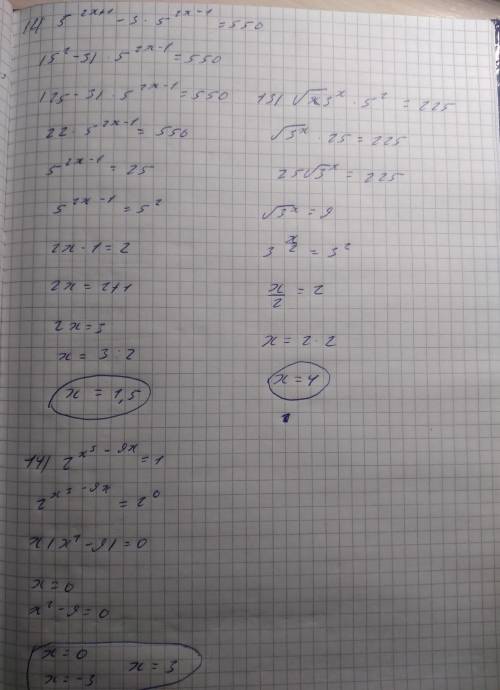 11) 5^{2x+1} - 3 · 5^{2x-1} = 550
(5² - 3) · 5^{2x-1} = 550
(25 - 3) · 5^{2x-1} = 550
22 · 5^{2x-1} = 550
5^{2x-1} = 25
5^{2x-1} = 5²
2x - 1 = 2
2x = 2+1
2x = 3
x = 3 : 2
x = 1,5
13) √3^x · 5² = 225
√3^x · 25 = 225
25√3^x = 225
√3^x = 9
3^{x/2} = 3²
x/2 = 2
x = 2 · 2
x = 4
14) 2^{x³ - 9x} = 1
2^{x³ - 9x} = 2⁰
x(x² - 9) = 0
x = 0
x² - 9 = 0
x = 0
x = -3 x = 3